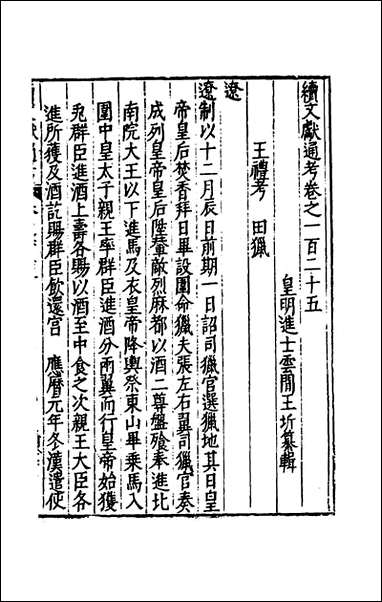 續文獻通考卷之一百二十五
皇明進士雲間王圻纂輯
王禮考　田獵
遼
遼制以十二月辰日前期一日詔司獵官選獵地其日皇
帝皇后焚香拜日畢設圍命獵夫張左右翼司獵官奏
成列皇帝皇后陞輦敵烈麻都以酒二尊盤飱奉進比
南院大王以下進馬及衣皇帝降輿祭東山畢乗馬入
圍中皇太子親王率群臣進酒分兩翼而行皇帝始獲
兎群臣進酒上壽各賜以酒至中食之次親王大臣各
進所獲及酒訖賜群臣飲還宫　應曆元年冬漢遣使